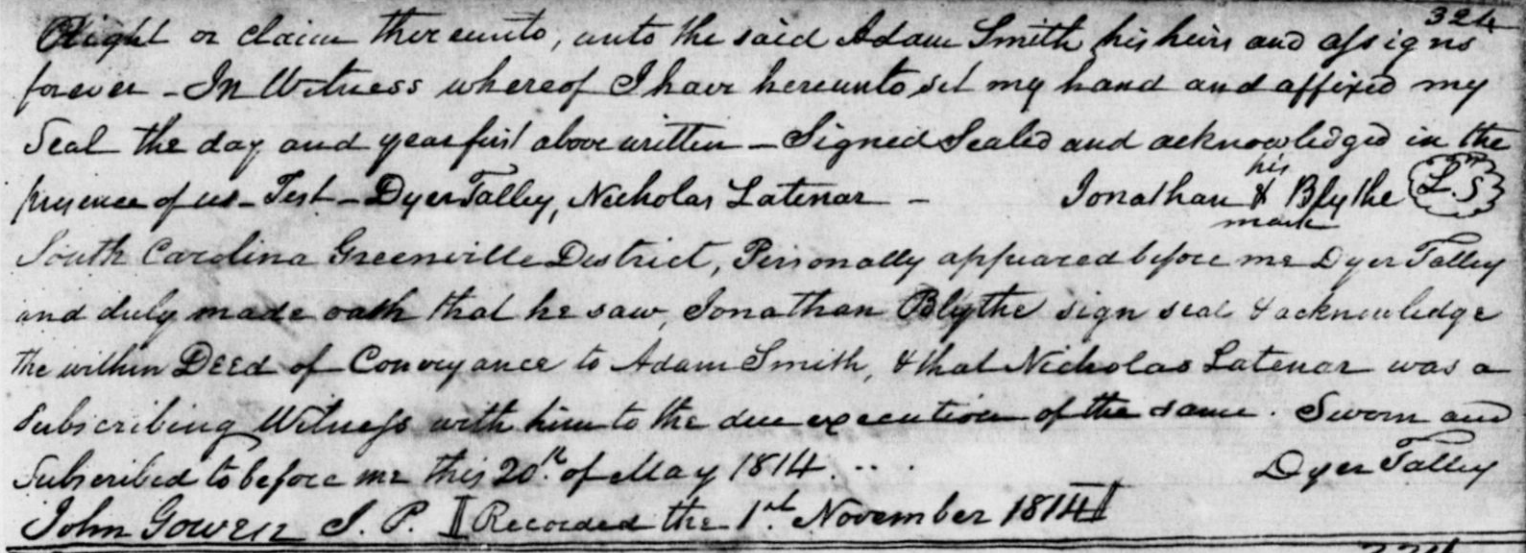 324
Right or claim thereunto, unto the said Adam Smith his heirs and assigns
forever - In Witness whereof I have hereunto set my hand and affixed my
Seal the day and year first above written - Signed Sealed and acknowledged in the
presence of us - Test - Dyer Talley, Nicholas Latenar - Jonathan his X mark Blythe L.S
South Carolina Greenville District, Personally appeared before me Dyer Talley
and duly made oath that he saw Jonathan Blythe sign seal & acknowledge
the within Deed of Conveyance to Adam Smith, & that Nicholas Latenar was a
Subscribing Witness with him to the due execution of the same. Sworn and
Subscribed to before me this 20th. of May 1814 ... Dyer Talley
John Gowen J. P. || Recorded the 1st. November 1814 ||